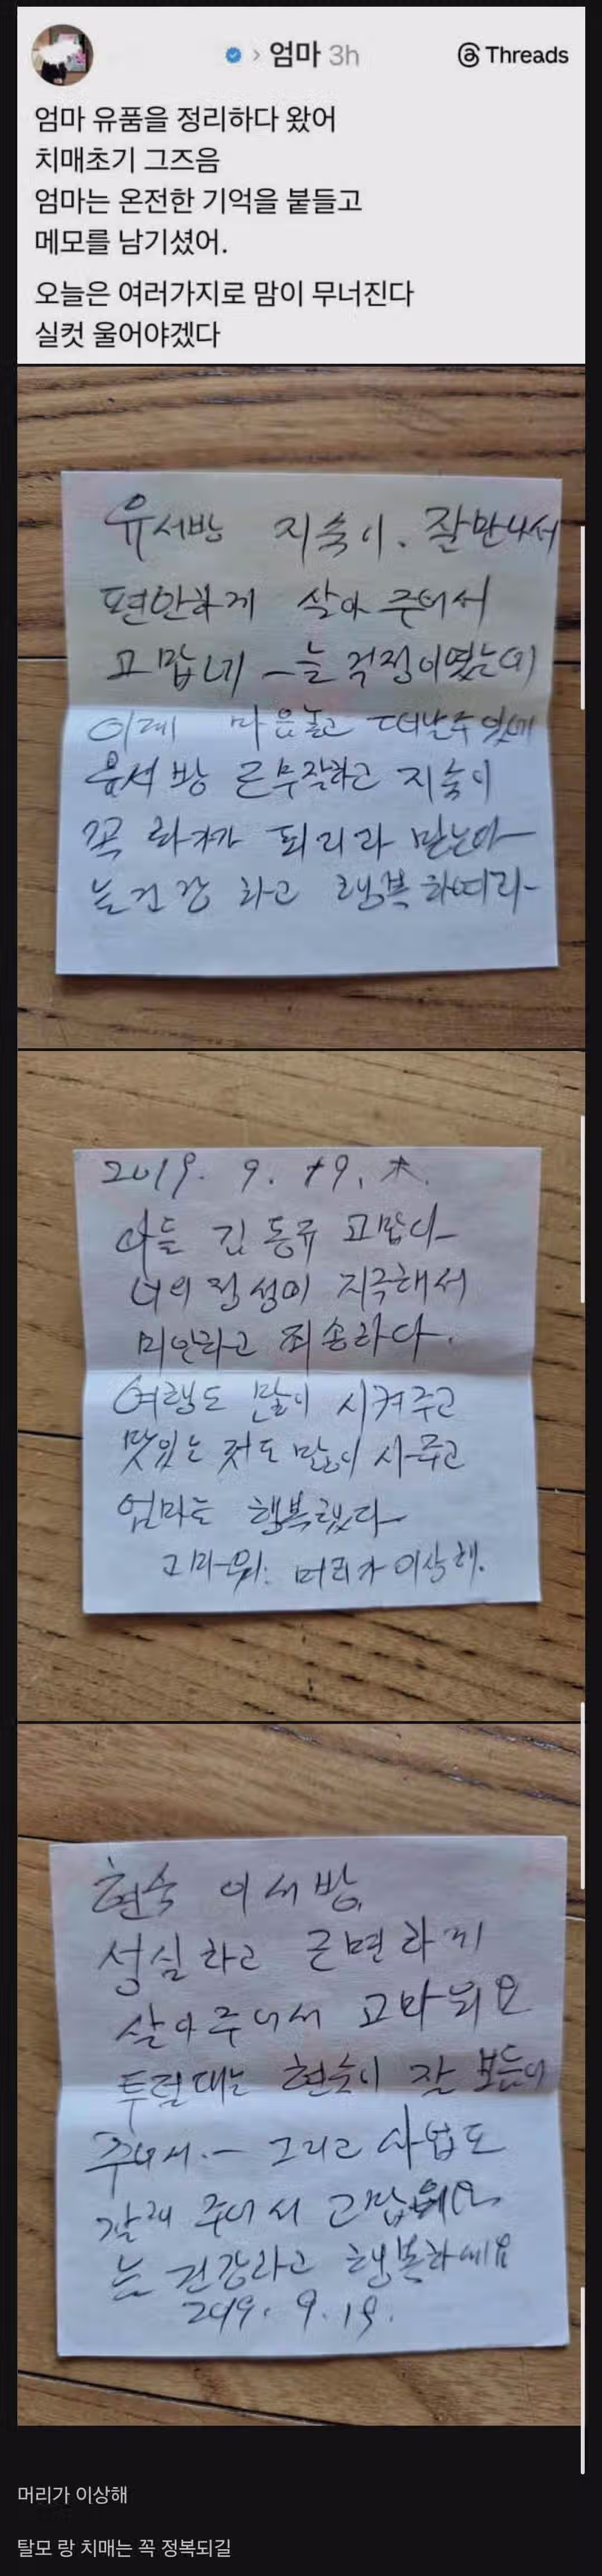 엄마 3h
Threads
엄마 유품을 정리하다 왔어
치매초기 그즈음
엄마는 온전한 기억을 붙들고
메모를 남기셨어.
오늘은 여러가지로 맘이 무너진다
실컷 울어야겠다
유서방 지숙이. 잘만나서
편안하게 살아 주어서
고맙네 늘 걱정이였는데
이제 마음놓고 떠날수 있네
유서방 지숙이
꼭 화가가 되리라 믿는다
늘 건강 하고 행복 하여라
2019. 9. 19. 木.
아들 김동규 고맙다
너의 정성이 지극해서
미안하고 죄송하다.
여행도 많이 시켜주고
맛있는 것도 많이 사주고
엄마는 행복했다
고마워. 머리가 이상해.
현숙 이서방
성실하고 근면하게
살아 주어서 고마워요
투덜대는 현숙이 잘 보듬어
주어서. 그리고 사업도
잘해 주어서
늘 건강하고 행복하세요
2019. 9. 19.
머리가 이상해
탈모 랑 치매는 꼭 정복되길